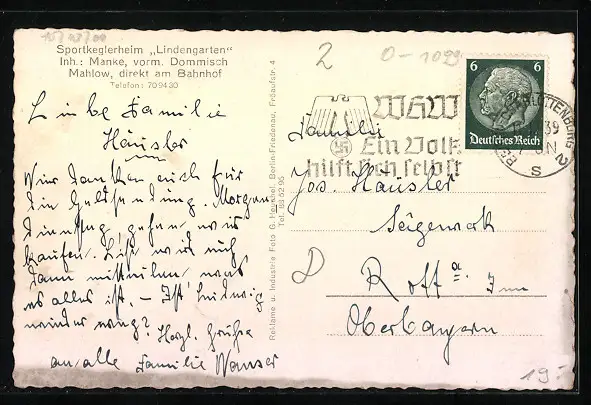 Sportkeglerheim „Lindengarten"
Inh.: Manke, vorm. Dommisch
Mahlow, direkt am Bahnhof
Telefon: 70 94 30
Liebe Familie
Häusler
Wir danken euch für
die Geldsendung. Morgen
Dienstag, gehen wir
kaufen. Liesl wird euch
dann mitteilen, was
es alles ist. – Ist Ludwig
wieder weg? Herzl. Grüße
an alle Familie Wanser
Reklame u. Industrie Foto G. Henschel, Berlin-Friedenau, Fröaufstr. 4
Tel. 88 52 95
2
0-1029
WHW
Ein Volk
hilft sich selbst
6 6
Deutsches Reich
CHARLOTTENBURG 2
39
S
Familie
Jos. Häusler
Sägewerk
Rott a. Inn
Oberbayern
D
19.-